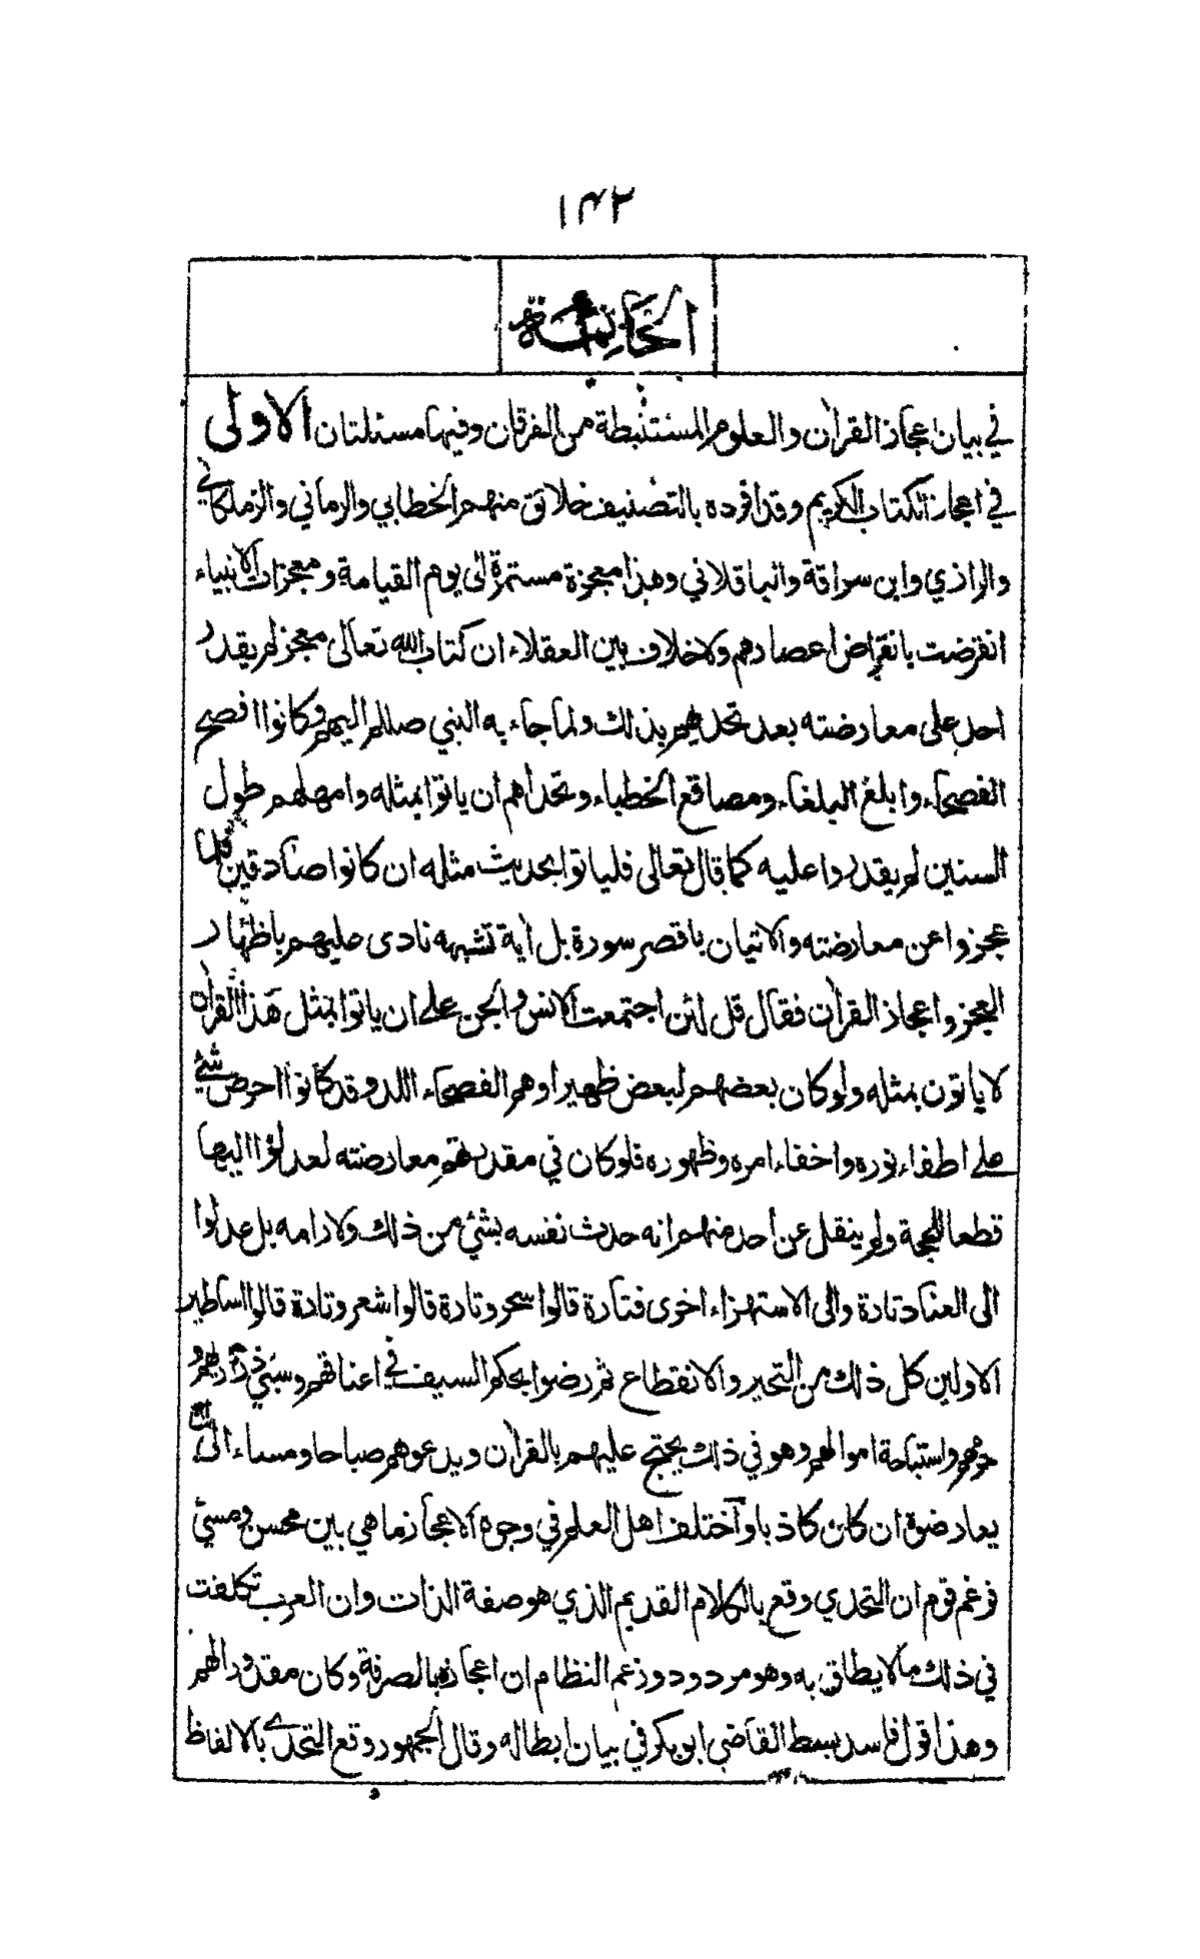 ١٤٢
الخاتمة
في بيان اعجاز القرآن والعلوم المستنبطة من الفرقان وفيها مسئلتان الاولى
في اعجاز الكتاب الكريم وقد افرده بالتصنيف خلائق منهم الخطابي والرماني والزملكاني
والرازي وابن سراقة والباقلاني وهذا معجزة مستمرة الى يوم القيامة ومعجزات الانبياء
انقرضت بانقراض اعصارهم ولا خلاف بين العقلاء ان كتاب الله تعالى معجز لم يقدر
احد على معارضته بعد تحديهم بذلك ولما جاء به النبي صللم اليهم وكانوا افصح
الفصحاء وابلغ البلغاء ومصاقع الخطباء وتحداهم ان ياتوا بمثله وامهلهم طول
السنين لم يقدروا عليه كما قال تعالى فلياتوا بحديث مثله ان كانوا صادقين فلما
عجزوا عن معارضته والاتيان باقصر سورة بل آية تشبهه نادى عليهم باظهار
العجز واعجاز القرآن فقال قل لئن اجتمعت الانس والجن على ان ياتوا بمثل هذا القرآن
لا ياتون بمثله ولو كان بعضهم لبعض ظهيرا وهم الفصحاء اللد وقد كانوا احرص شيئ
على اطفاء نوره واخفاء امره وظهوره فلو كان في مقدرتهم معارضته لعدلوا اليها
قطعا للحجة ولم ينقل عن احد منهم انه حدث نفسه بشئ من ذلك ولا رامه بل عدلوا
الى العناد تارة والى الاستهزاء اخرى فتارة قالوا سحر وتارة قالوا شعر وتارة قالوا اساطير
الاولين كل ذلك من التحير والانقطاع ثم رضوا بحكم السيف في اعناقهم وسبي ذراريهم و
حرمهم واستباحة اموالهم وهو في ذلك يحتج عليهم بالقرآن ويدعوهم صباحا ومساء الى ان
يعارضوه ان كان كاذبا واختلف اهل العلم في وجوه الاعجاز ما هي بين محسن ومسئ
فزعم قوم ان التحدي وقع بالكلام القديم الذي هو صفة الذات وان العرب تكلفت
في ذلك ما لا يطاق به وهو مردود وزعم النظام ان اعجازه بالصرفة وكان مقدورا لهم
وهذا قول فاسد بسط القاضي ابو بكر في بيان ابطاله وقال الجمهور وقع التحدي بالالفاظ